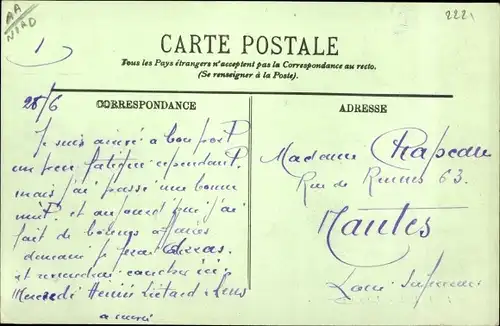 AA
NORD
2221
1
CARTE POSTALE
Tous les Pays étrangers n'acceptent pas la Correspondance au recto.
(Se renseigner à la Poste).
28/6
CORRESPONDANCE
ADRESSE
Je suis arrivé a bon port
un peu fatigué cependant.
mais j'ai passé une bonne
nuit. et
fait de bonnes affaires
demain je ferai Arras
et reviendrai coucher ici.
Mercredi Henin Lietard & Lens
Madame Chapeau
Rue de Rennes 63.
Nantes
Loire Inférieure